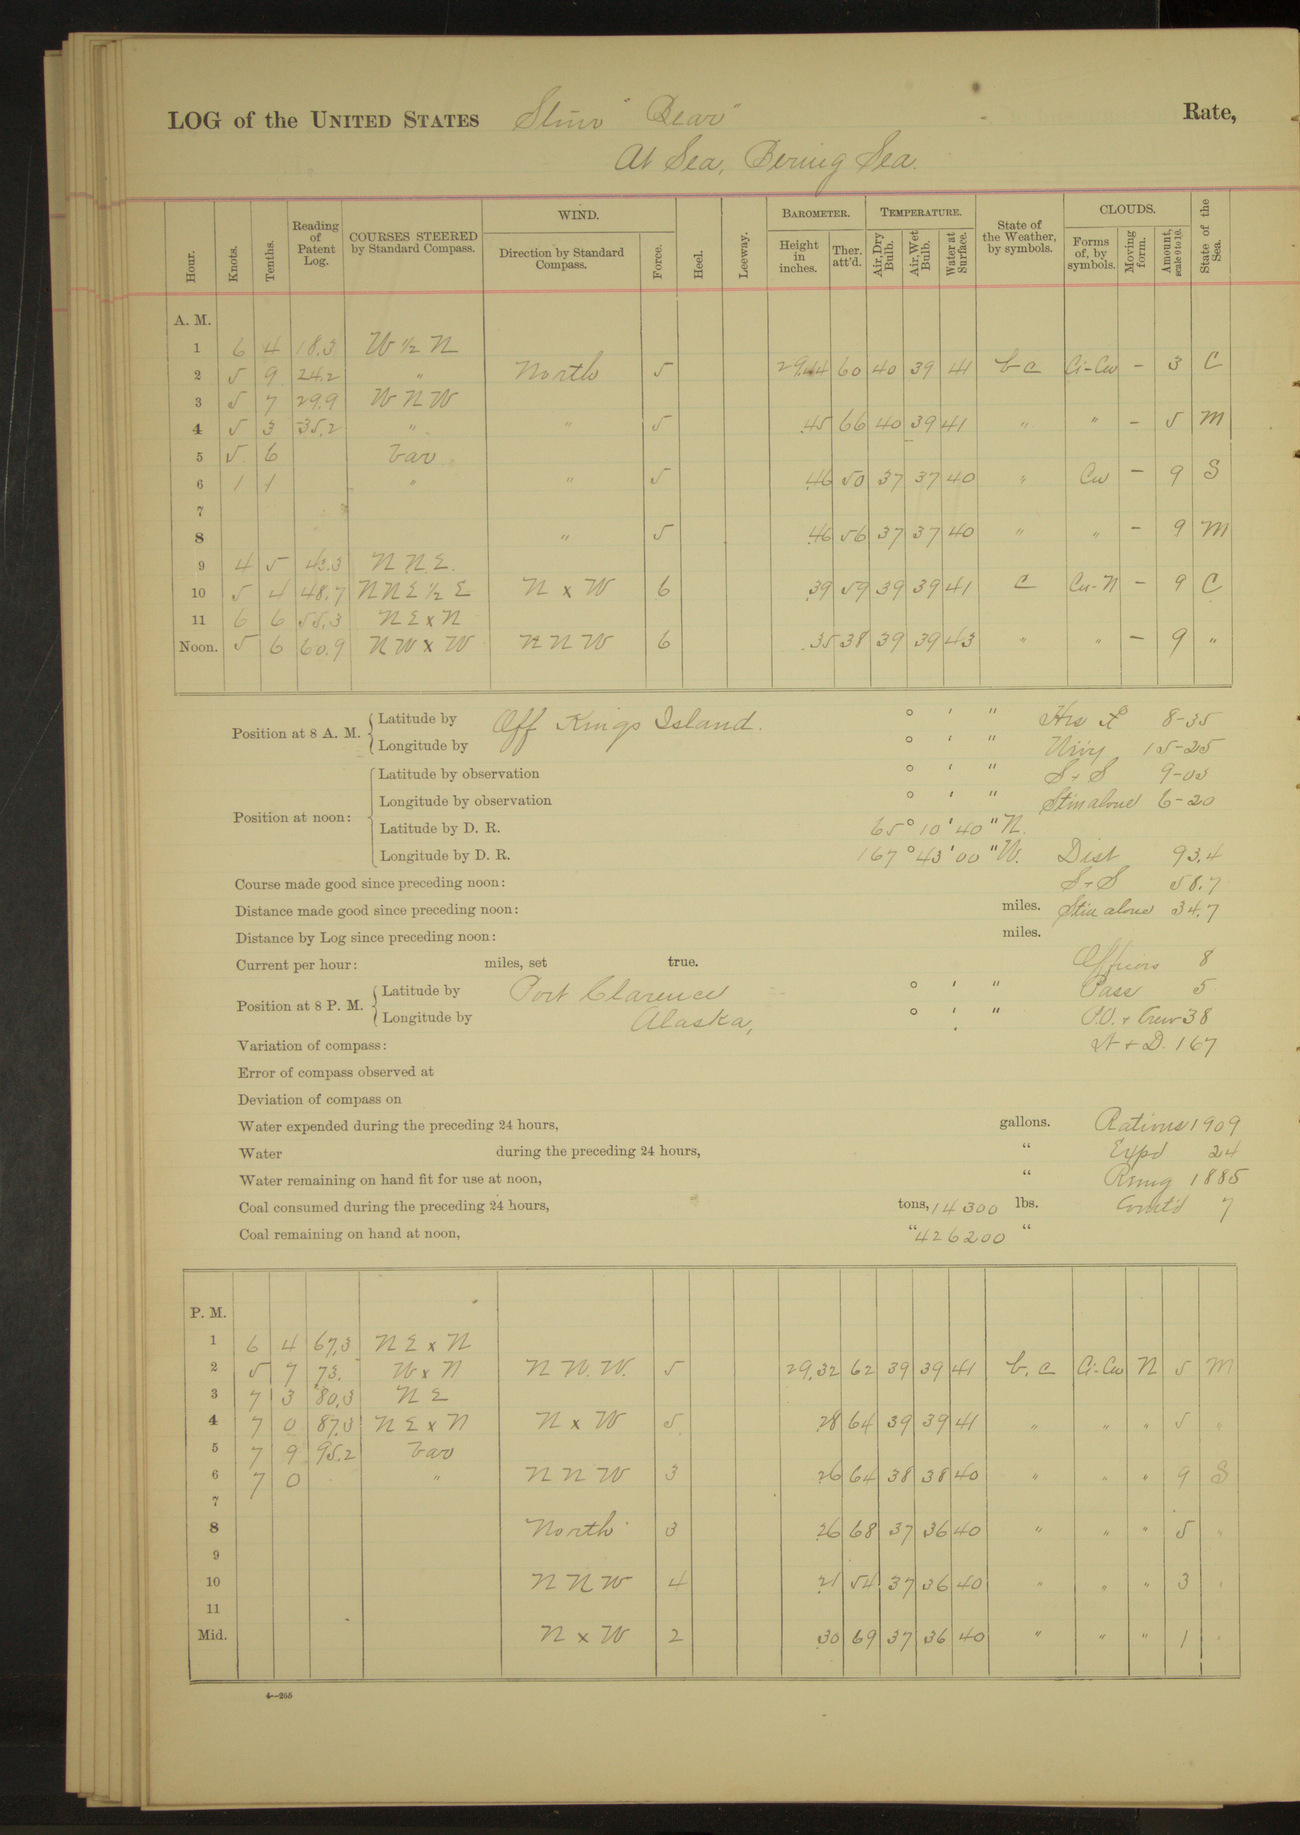 LOG of the UNITED STATES Stmr "Bear" Rate,
At Sea, Bering Sea.
Hour. Knots. Tenths. Reading of Patent Log. COURSES STEERED by Standard Compass. WIND. Direction by Standard Compass. Force. Heel. Leeway. BAROMETER. Height in inches. Ther. att'd. TEMPERATURE. Air, Dry Bulb. Air, Wet Bulb. Water at Surface. State of the Weather, by symbols. CLOUDS. Forms of, by symbols. Moving form. Amount, scale 0 to 10. State of the Sea.
A. M.
1 6 4 18.3 W ½ N
2 5 9 24.2 " North 5 29.44 60 40 39 41 b c Ci-Cu - 3 C
3 5 7 29.9 W N W
4 5 3 35.2 " " 5 .45 66 40 39 41 " " - 5 M
5 5 6 Var
6 1 1 " " 5 .46 50 37 37 40 " Cu - 9 S
7
8 " 5 .46 56 37 37 40 " " - 9 M
9 4 5 43.3 N N E.
10 5 4 48.7 N N E ½ E N x W 6 .39 59 39 39 41 C Cu-N - 9 C
11 6 6 55.3 N E x N
Noon. 5 6 60.9 N W x W N N W 6 .35 38 39 39 43 " " - 9 "
Position at 8 A. M. Latitude by Off Kings Island. ° ' " Hrs 8-35
Longitude by ° ' " 15-25
Position at noon: Latitude by observation ° ' " S + S 9-05
Longitude by observation ° ' " Stm alone 6-20
Latitude by D. R. 65° 10' 40" N.
Longitude by D. R. 167° 43' 00" W. Dist 93.4
Course made good since preceding noon: S + S 58.7
Distance made good since preceding noon: miles. Stm alone 34.7
Distance by Log since preceding noon: miles.
Current per hour: miles, set true. Officers 8
Position at 8 P. M. Latitude by Port Clarence ° ' " Pass 5
Longitude by Alaska, ° ' " P.O. + Crew 38
Variation of compass: N + D. 167
Error of compass observed at
Deviation of compass on
Water expended during the preceding 24 hours, gallons. Rations 1909
Water during the preceding 24 hours, " Expd 24
Water remaining on hand fit for use at noon, " Rmng 1885
Coal consumed during the preceding 24 hours, tons, 14300 lbs. Comt'd 7
Coal remaining on hand at noon, " 426200 "
P. M.
1 6 4 67.3 N E x N
2 5 7 73. W x N N W. W. 5 29.32 62 39 39 41 b. c Ci-Cu N 5 M
3 7 3 80.3 N E
4 7 0 87.3 N E x N N x W 5 .28 64 39 39 41 " " " 5 "
5 7 9 95.2 Var
6 7 0 " N N W 3 .26 64 38 38 40 " " " 9 S
7
8 North 3 .26 68 37 36 40 " " " 5 "
9
10 N N W 4 .21 54 37 36 40 " " " 3 "
11
Mid. N x W 2 .30 69 37 36 40 " " " 1 "
4—265